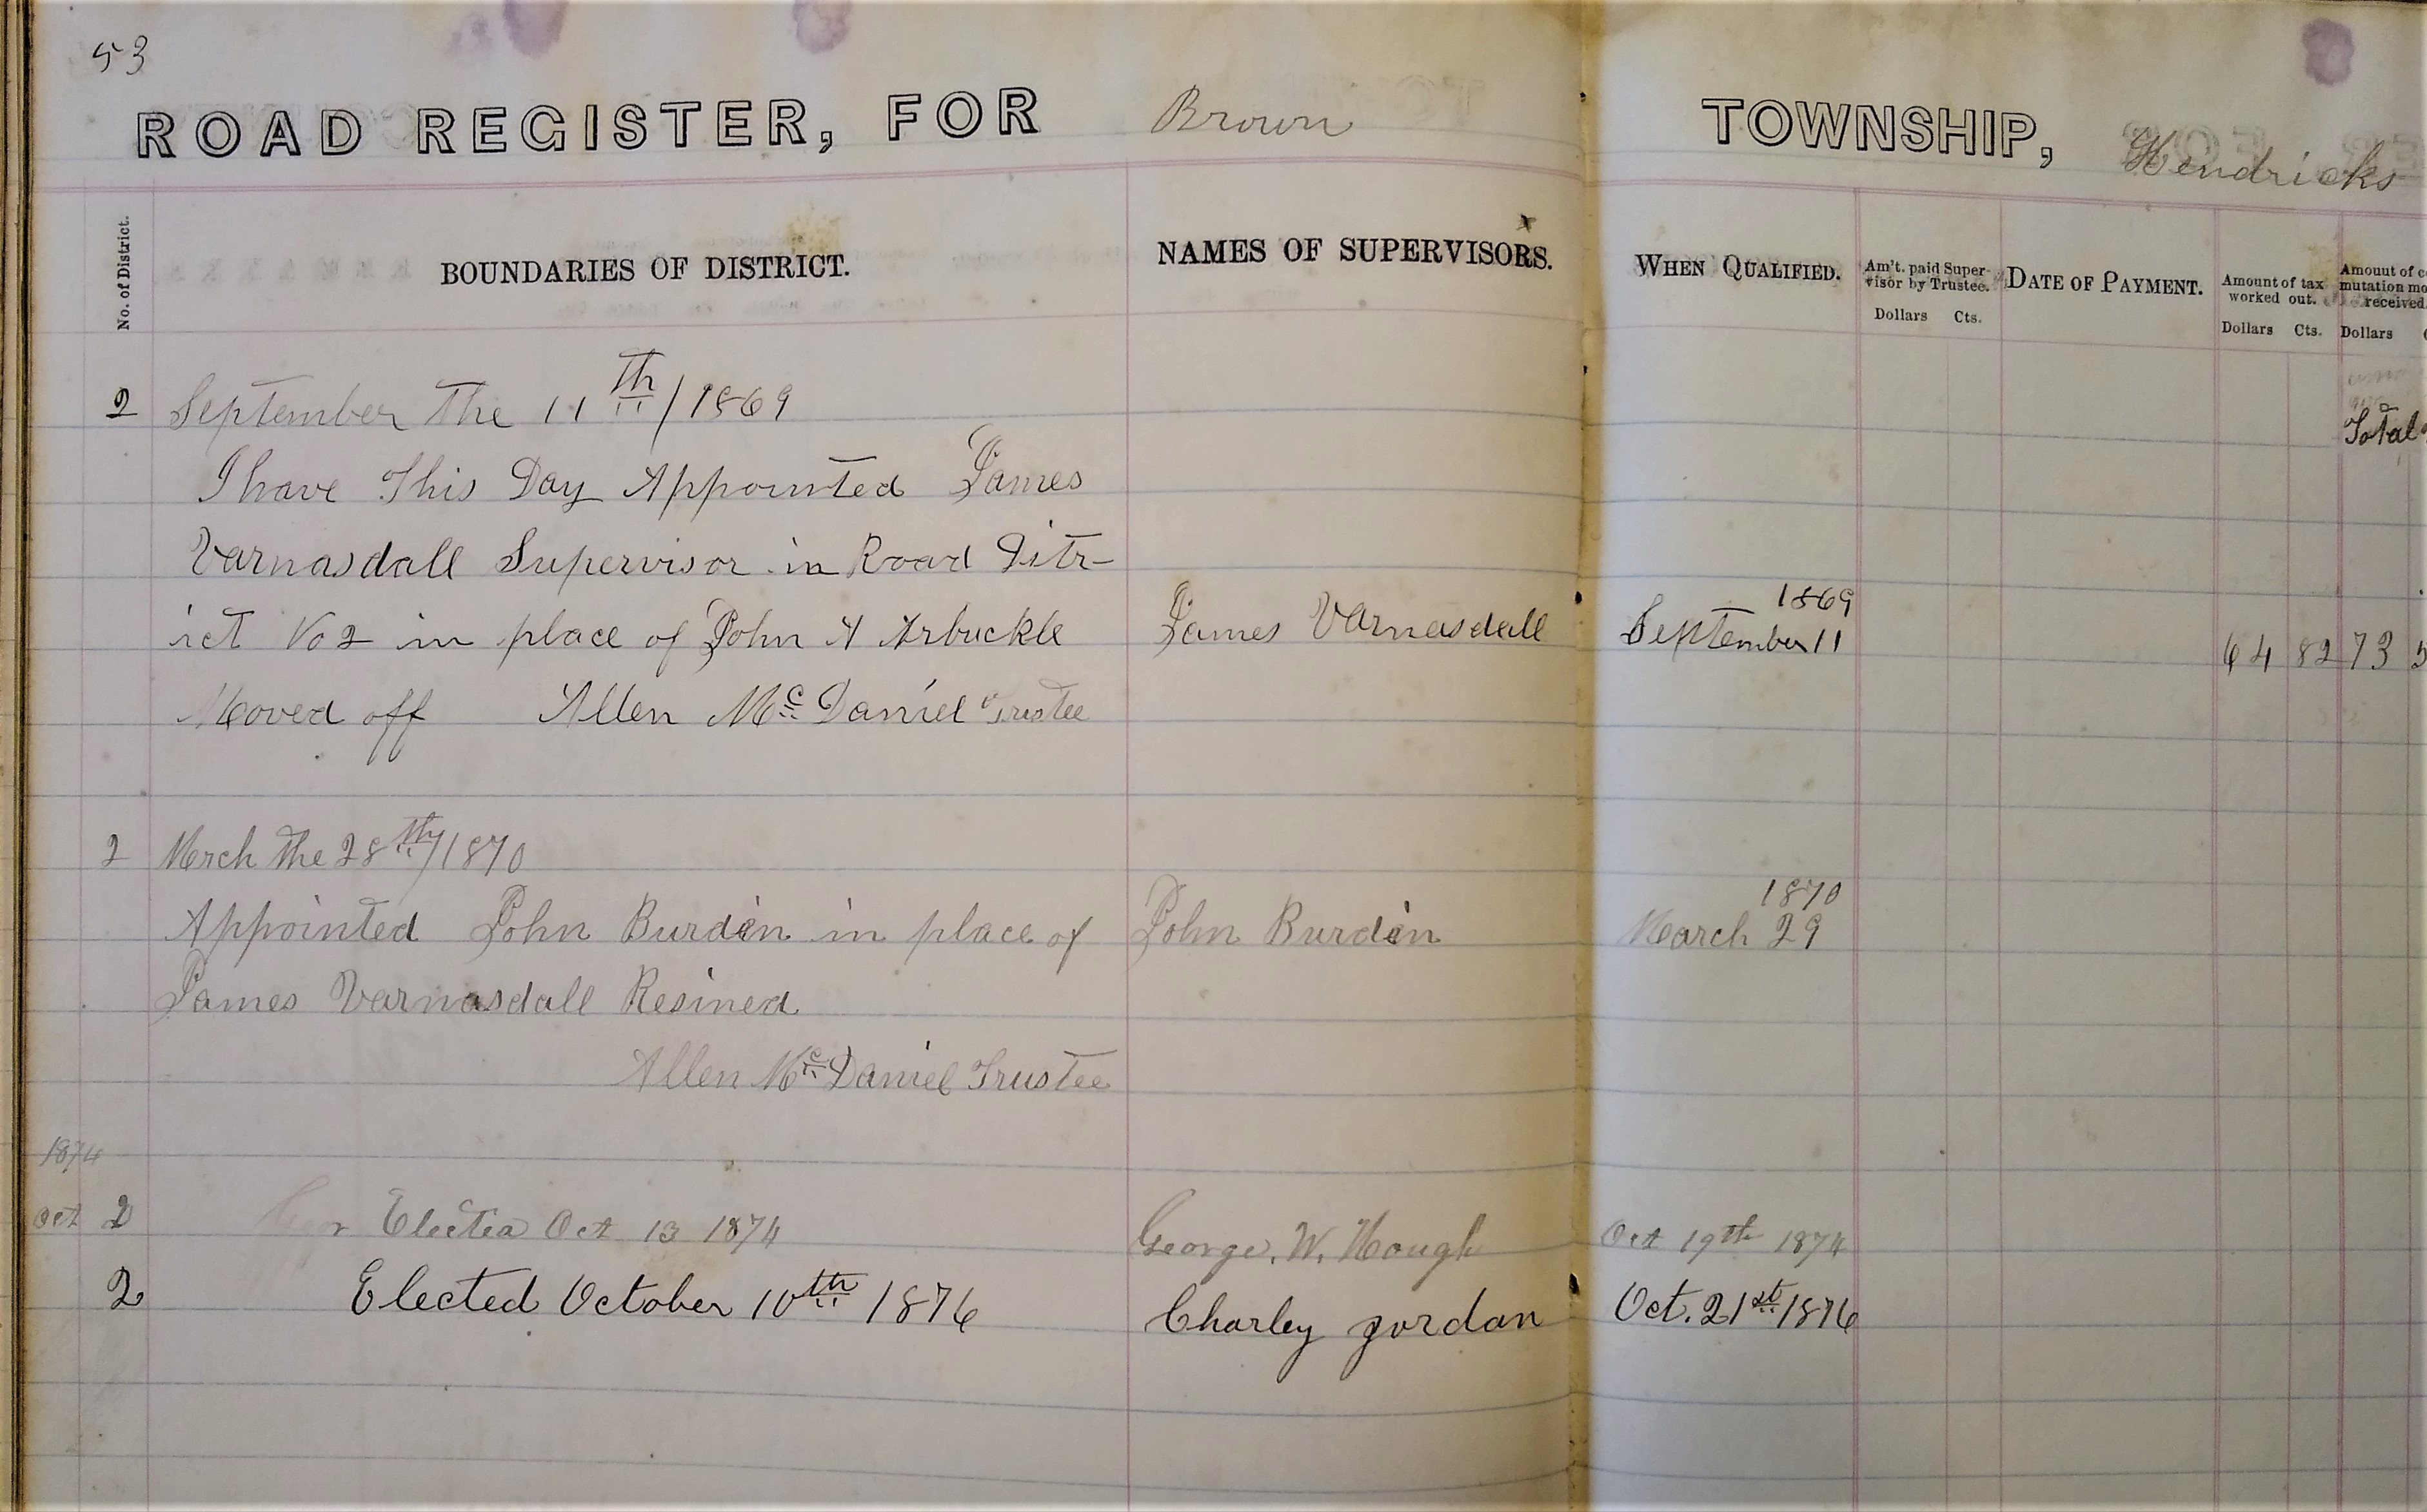 53
ROAD REGISTER, FOR Brown TOWNSHIP, Hendricks
No. of District. BOUNDARIES OF DISTRICT. NAMES OF SUPERVISORS. WHEN QUALIFIED. Am't. paid Supervisor by Trustee. Dollars Cts. DATE OF PAYMENT. Amount of tax worked out. Dollars Cts. Amount of mutation received Dollars
2 September The 11th/1869
Total
I have This Day Appointed James
Varnasdall Supervisor in Road Distr-
1869
ict No 2 in place of John A Arbuckle James Varnasdall September 11 64 82 73 5
Moved off Allen Mc Daniel Trustee
2 March The 28th/1870
1870
Appointed John Burdin in place of John Burdin March 29
James Varnasdall Resined
Allen Mc Daniel Trustee
1874
Oct 2 Elected Oct 13 1874 George. W. Hough Oct 19th 1874
2 Elected October 10th 1876 Charley Jordan Oct. 21st 1876